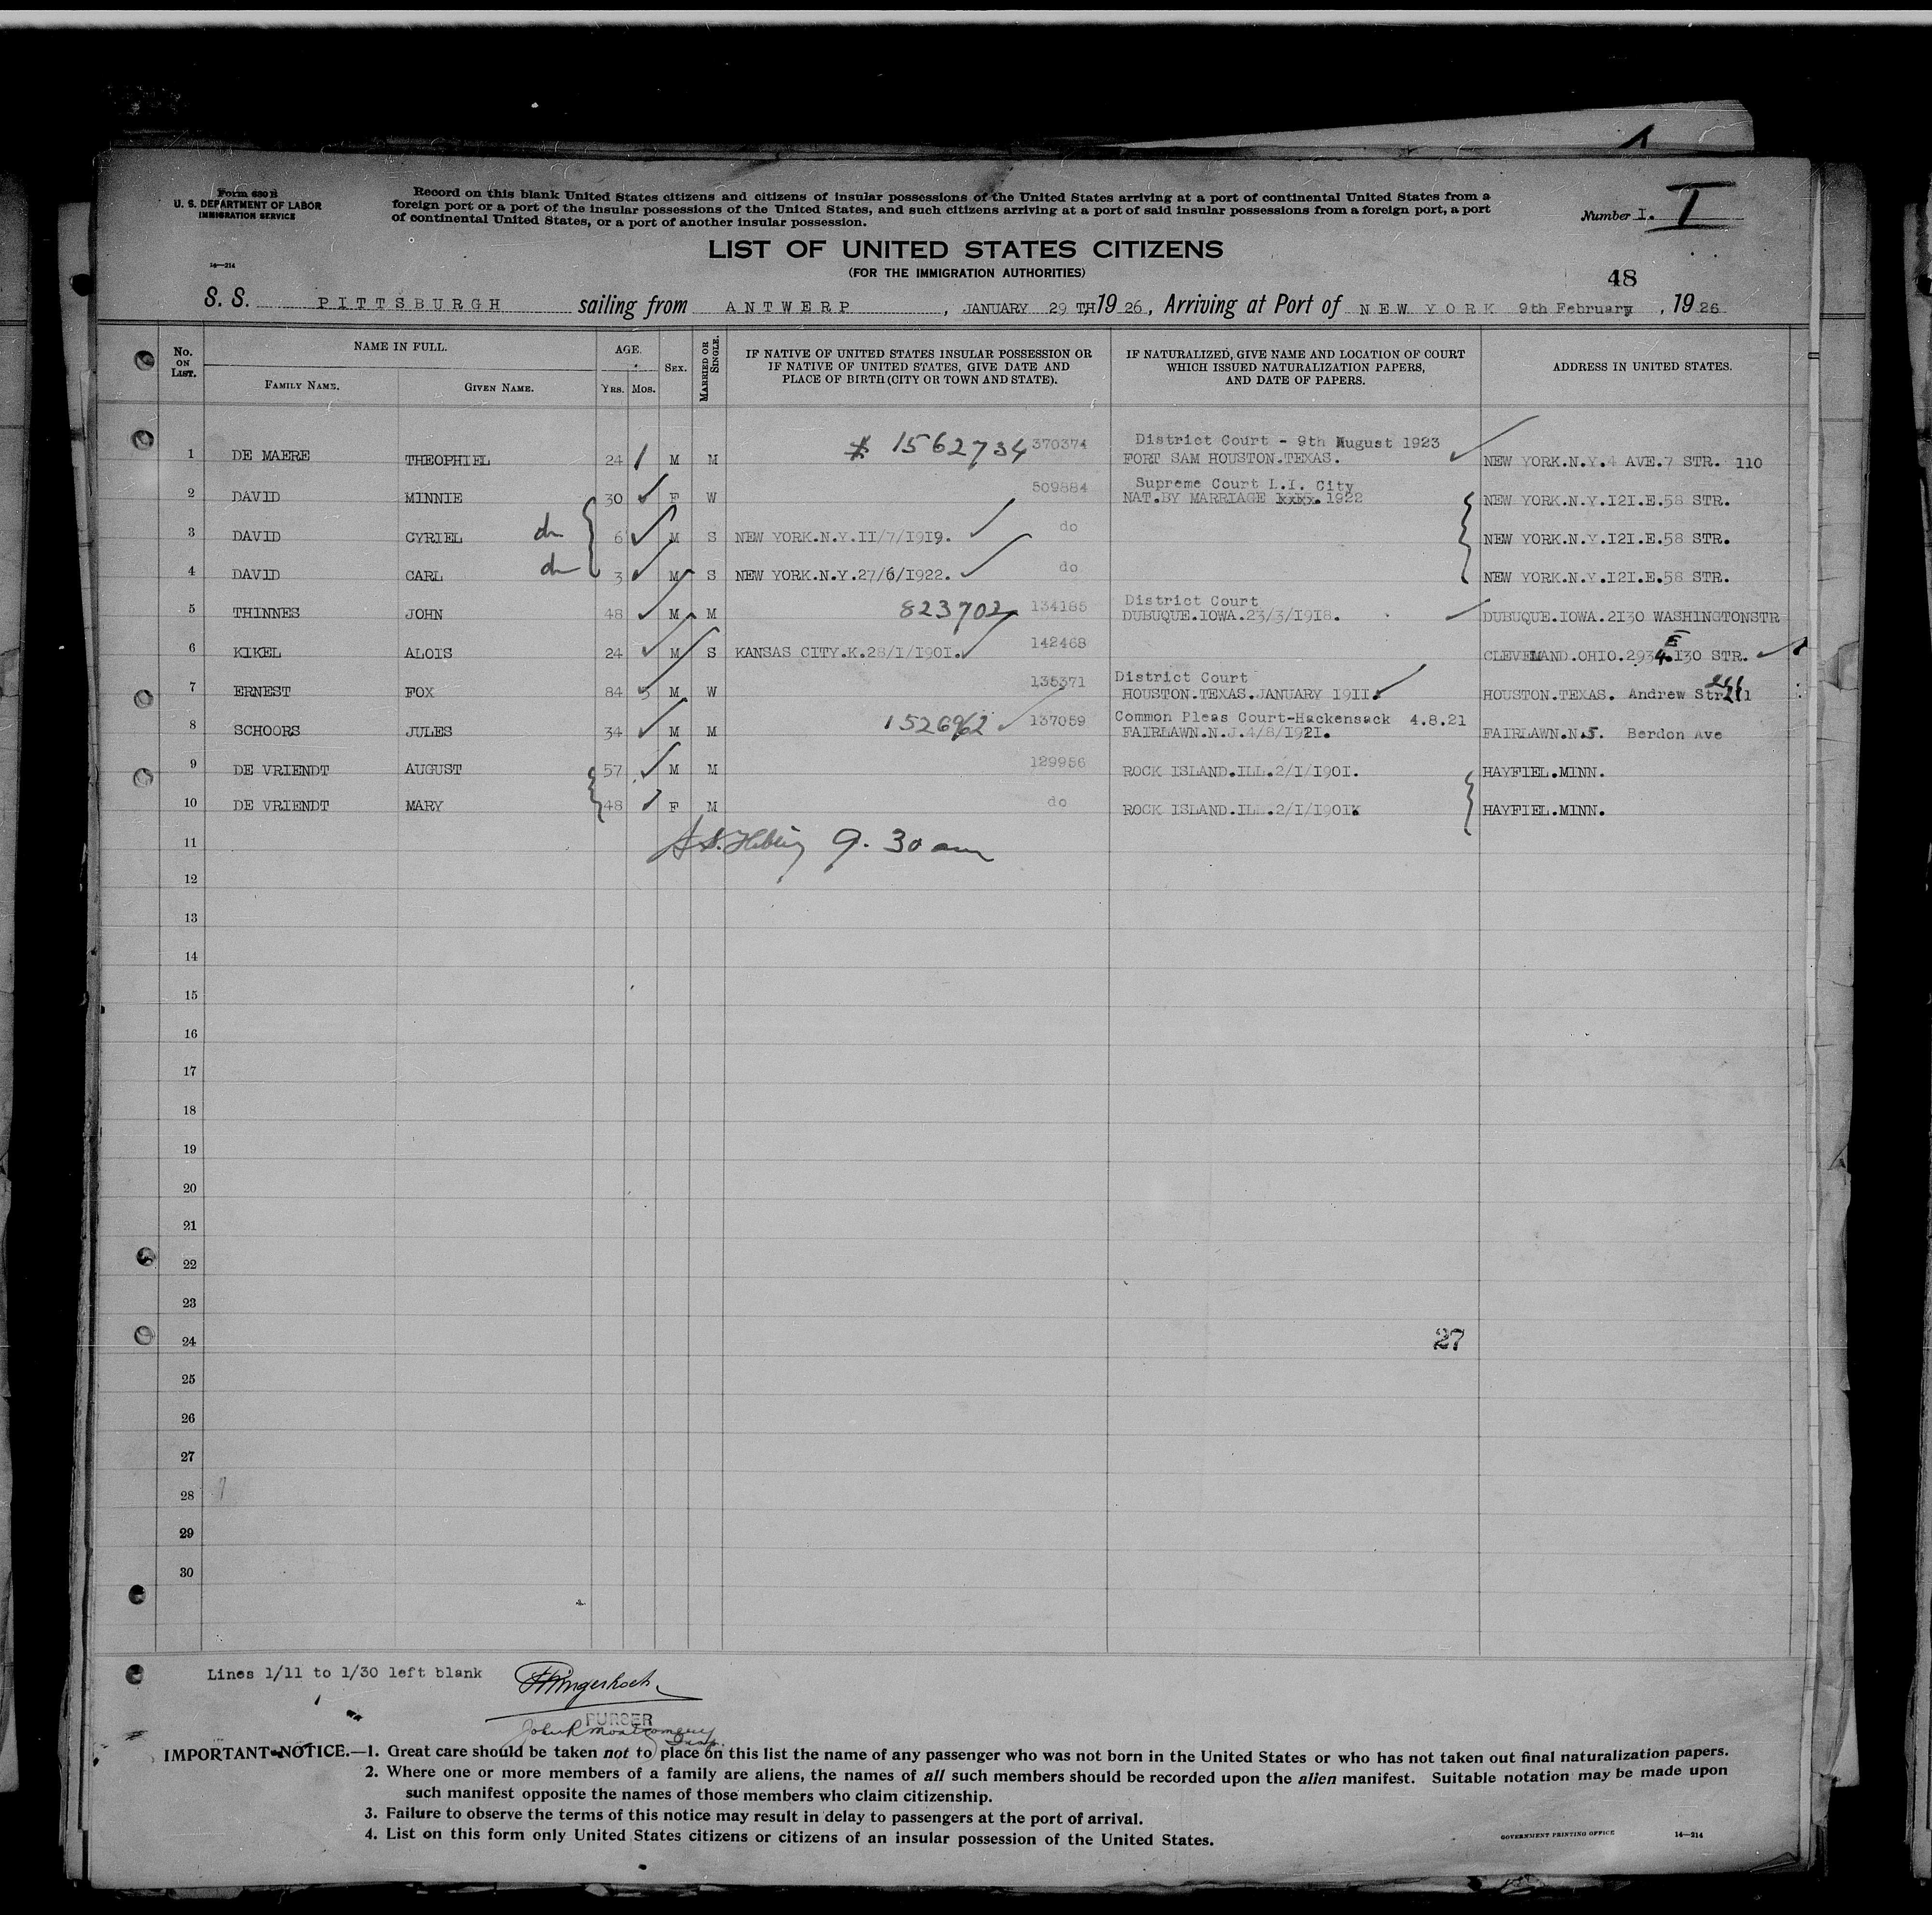 Form 630 B
U. S. DEPARTMENT OF LABOR
IMMIGRATION SERVICE
14—214
Record on this blank United States citizens and citizens of insular possessions of the United States arriving at a port of continental United States from a
foreign port or a port of the insular possessions of the United States, and such citizens arriving at a port of said insular possessions from a foreign port, a port
of continental United States, or a port of another insular possession.
Number I. I
LIST OF UNITED STATES CITIZENS
(FOR THE IMMIGRATION AUTHORITIES)
48
S. S. PITTSBURGH sailing from ANTWERP, JANUARY 29 TH 1926, Arriving at Port of NEW YORK 9th February, 1926
No. ON LIST.
NAME IN FULL.
FAMILY NAME.
GIVEN NAME.
AGE.
YRS. MOS.
SEX.
MARRIED OR SINGLE.
IF NATIVE OF UNITED STATES INSULAR POSSESSION OR
IF NATIVE OF UNITED STATES, GIVE DATE AND
PLACE OF BIRTH (CITY OR TOWN AND STATE).
IF NATURALIZED, GIVE NAME AND LOCATION OF COURT
WHICH ISSUED NATURALIZATION PAPERS,
AND DATE OF PAPERS.
ADDRESS IN UNITED STATES.
1 DE MAERE THEOPHIEL 24 M M 1562734 370374 District Court - 9th August 1923
FORT SAM HOUSTON.TEXAS. NEW YORK.N.Y.4 AVE.7 STR. 110
2 DAVID MINNIE 30 F W 509884 Supreme Court L.I. City
NAT.BY MARRIAGE xxxx. 1922 NEW YORK.N.Y.I2I.E.58 STR.
3 DAVID CYRIEL 6 M S NEW YORK.N.Y.II/7/I919. do NEW YORK.N.Y.I2I.E.58 STR.
4 DAVID CARL 3 M S NEW YORK.N.Y.27/6/I922. do NEW YORK.N.Y.I2I.E.58 STR.
5 THINNES JOHN 48 M M 823702 134185 District Court
DUBUQUE.IOWA.23/3/I9I8. DUBUQUE.IOWA.2I30 WASHINGTONSTR
6 KIKEL ALOIS 24 M S KANSAS CITY.K.28/I/I90I. 142468 CLEVELAND.OHIO.2934 E I30 STR.
7 ERNEST FOX 84 M W 135371 District Court
HOUSTON.TEXAS.JANUARY I9II. HOUSTON.TEXAS. Andrew Str.
8 SCHOORS JULES 34 M M 137059 Common Pleas Court-Hackensack 4.8.21
FAIRLAWN.N.J.4/8/I921. FAIRLAWN.N.J. Berdon Ave
9 DE VRIENDT AUGUST 57 M M 129956 ROCK ISLAND.ILL.2/I/I90I. HAYFIEL.MINN.
10 DE VRIENDT MARY 48 F M do ROCK ISLAND.ILL.2/I/I90I HAYFIEL.MINN.
11 9. 30 am
12
13
14
15
16
17
18
19
20
21
22
23
24 27
25
26
27
28
29
30
Lines 1/11 to 1/30 left blank
PURSER
John R Montgomery
IMPORTANT NOTICE.—1. Great care should be taken not to place on this list the name of any passenger who was not born in the United States or who has not taken out final naturalization papers.
2. Where one or more members of a family are aliens, the names of all such members should be recorded upon the alien manifest. Suitable notation may be made upon
such manifest opposite the names of those members who claim citizenship.
3. Failure to observe the terms of this notice may result in delay to passengers at the port of arrival.
4. List on this form only United States citizens or citizens of an insular possession of the United States.
GOVERNMENT PRINTING OFFICE 14—214